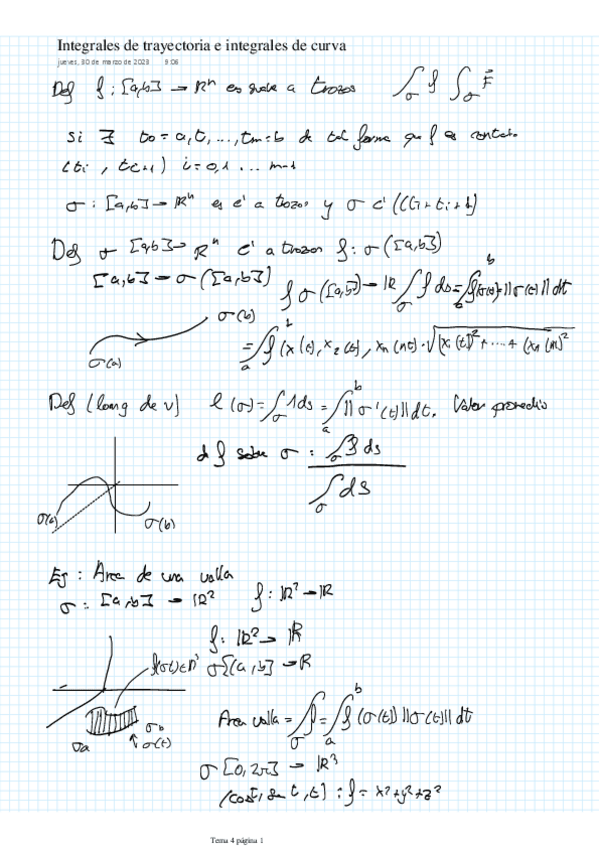 Integrales de trayectoria e integrales de curva
jueves, 30 de marzo de 2023 9:06
Def f : [a,b] → ℝⁿ es suave a trozos ∫_σ f ∫_σ F⃗
si ∃ t₀ = a, t, ..., tm = b de tal forma que f es
(ti, ti+1) i = 0,1 ... m-1
σ : [a,b] → ℝⁿ es c' a trozos y σ c' ((ti, ti+1)
Def σ [a,b] → ℝⁿ c' a trozos f : σ([a,b])
[a,b] → σ([a,b]) f σ([a,b]) → ℝ ∫_σ f ds = ∫ f(σ(t)) ||σ(t)|| dt
σ(b)
σ(a)
= ∫_a^b f(x(t), x₂(t), xn(nt)) · √((x₁(t))² + ... + (xn(n))²
Def (long de v) l(σ) = ∫_σ 1 ds = ∫_a^b ||σ'(t)|| dt. Valor promedio
d f sobre σ : ∫_σ f ds / ∫_σ ds
σ(a) σ(b)
Ej : Area de una valla
σ : [a,b] → ℝ² f : ℝ² → ℝ
f : ℝ² → ℝ
σ{(a,b] → ℝ
Area valla = ∫_σ f = ∫_a^b f(σ(t)) ||σ(t)|| dt
σa σb
↑ σ(t)
σ [0,2π] → ℝ³
(cost, sen t, t) : f = x² + y² + z²
Tema 4 página 1